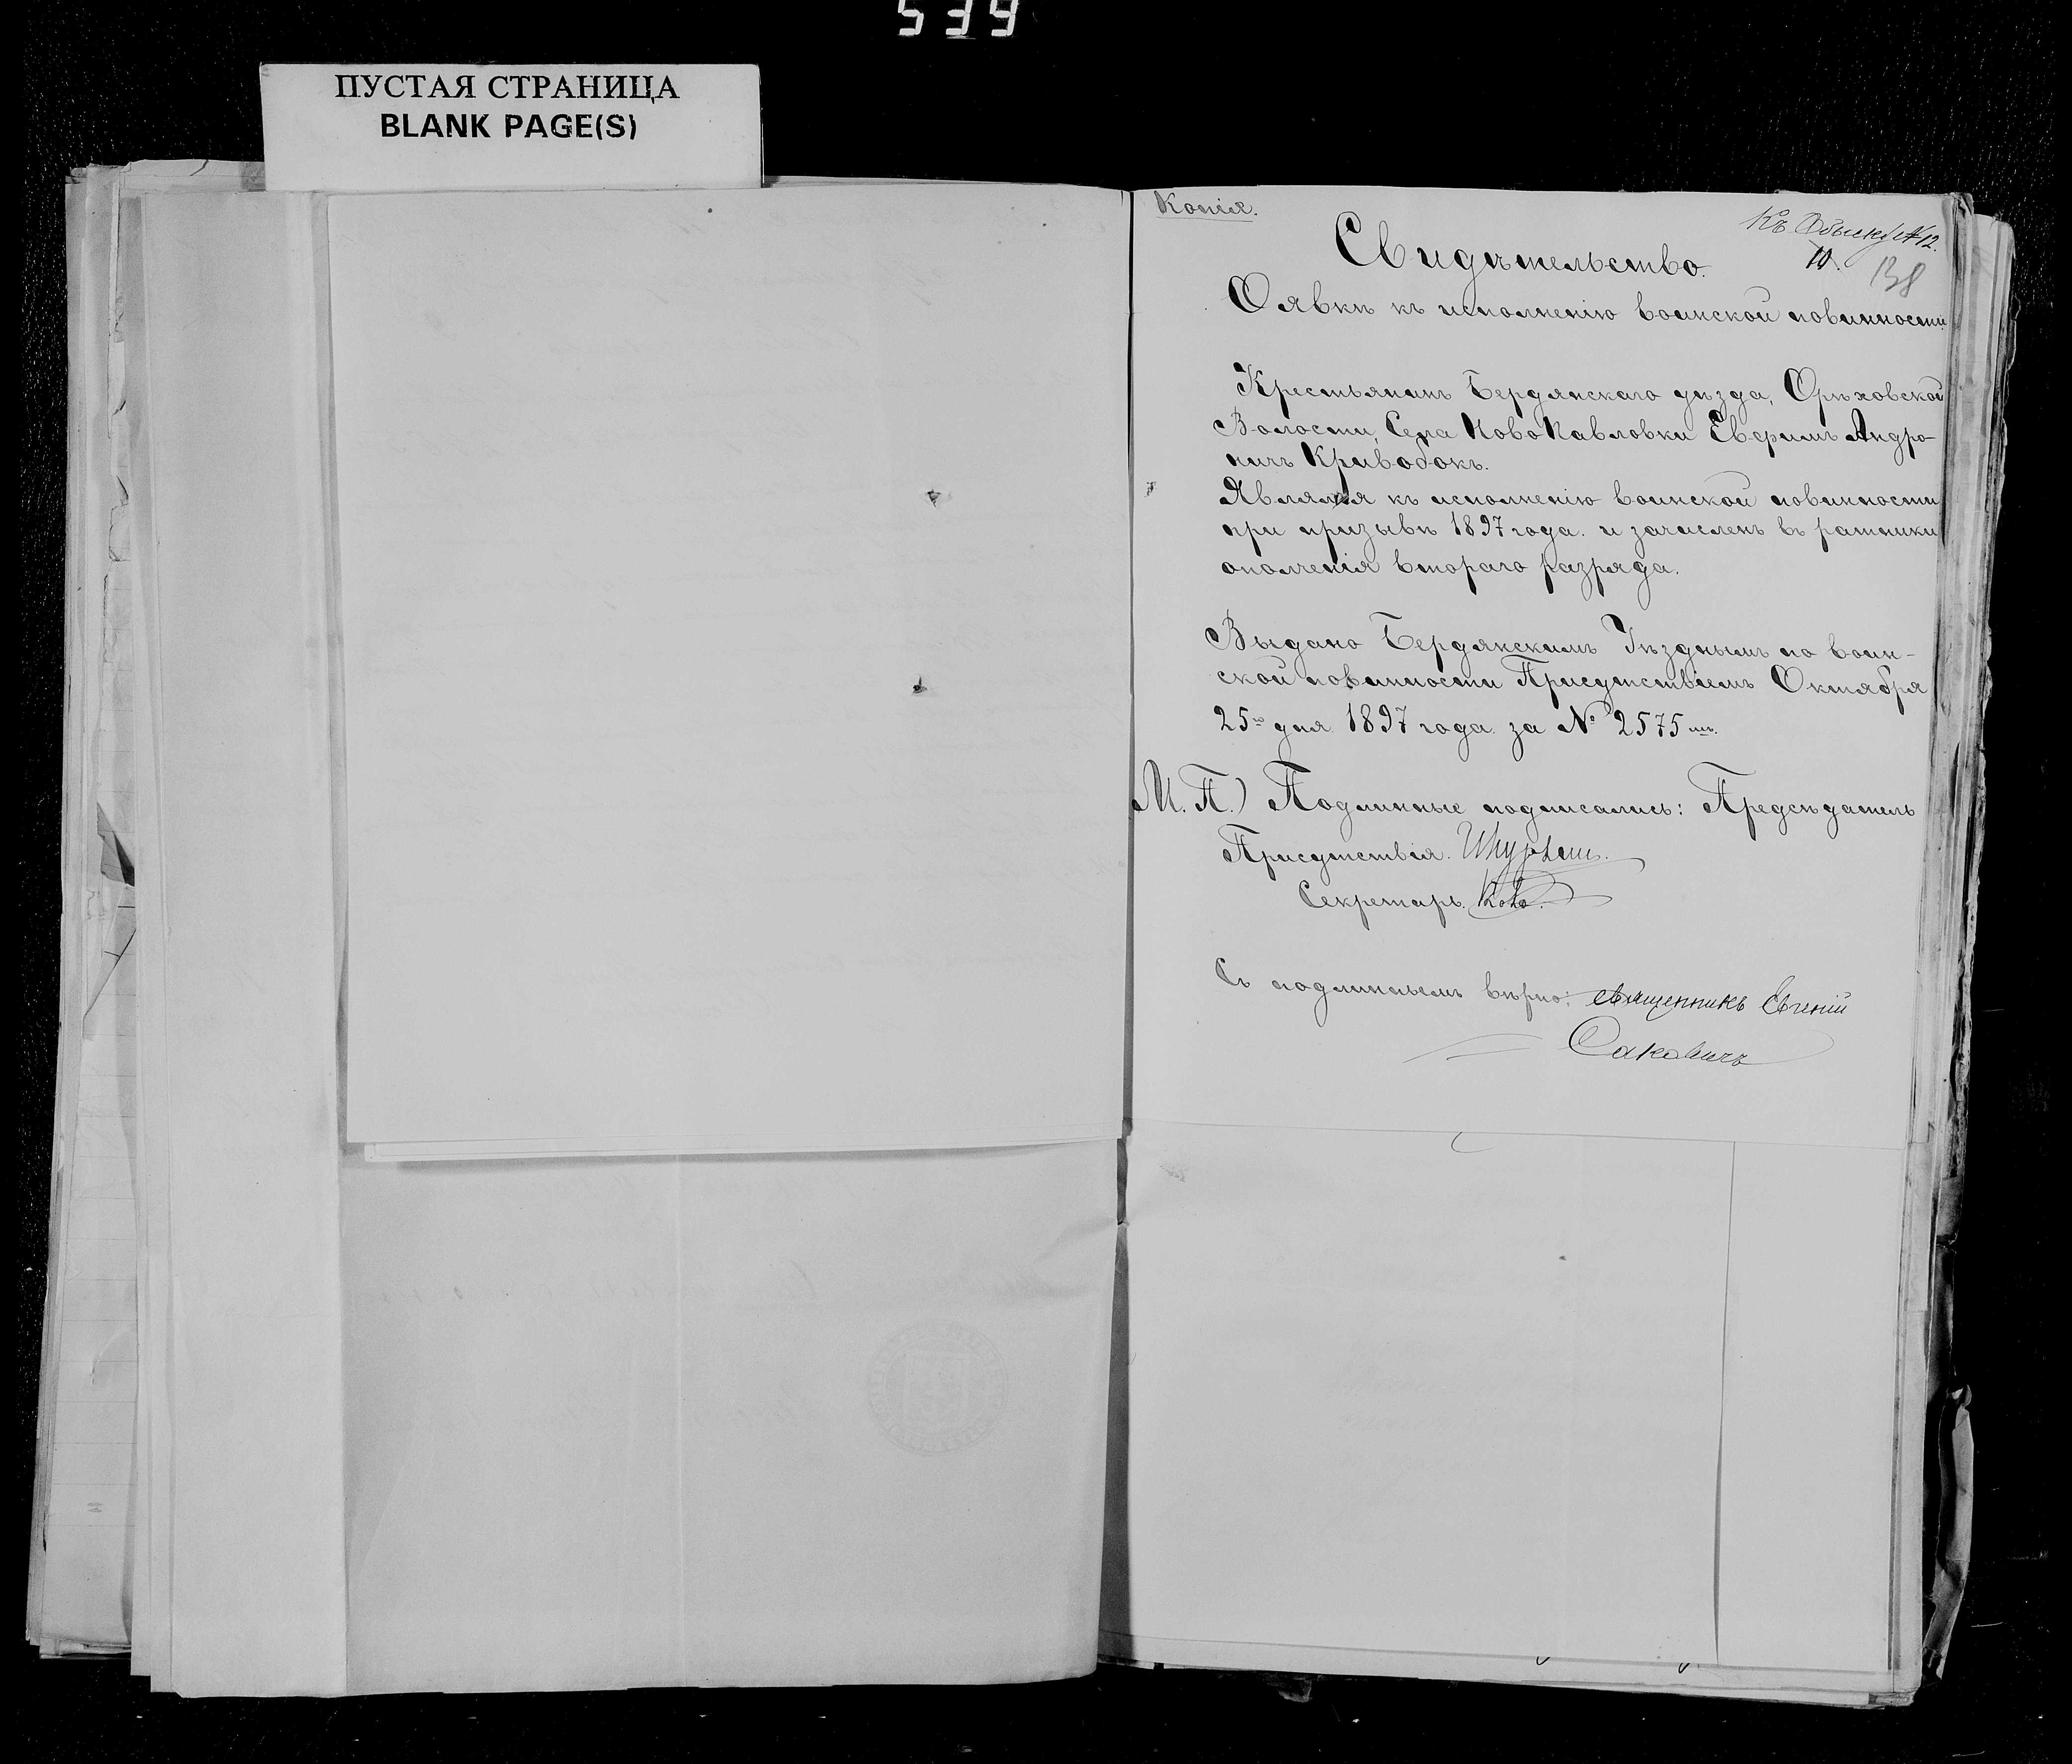 539
ПУСТАЯ СТРАНИЦА
BLANK PAGE(S)
Копія.
Къ Обыску № 12.
10.
138
Свидѣтельство.
О явкѣ къ исполненію воинской повинности
Крестьянинъ Бердянскаго уѣзда, Орѣховской
Волости, Села НовоПавловки Евфимъ Андро-
ничъ Кривобокъ.
Являлся къ исполненію воинской повинности
при призывѣ 1897 года. и зачисленъ въ ратники
ополченія втораго разряда.
Выдано Бердянскимъ Уѣзднымъ по воин-
ской повинности Присутствіемъ Октября
25го дня 1897 года. за № 2575мъ.
М. П.) Подлинные подписались: Предсѣдатель
Присутствія.
Секретарь.
Съ подлиннымъ вѣрно: священникъ Евгеній
Саковичъ